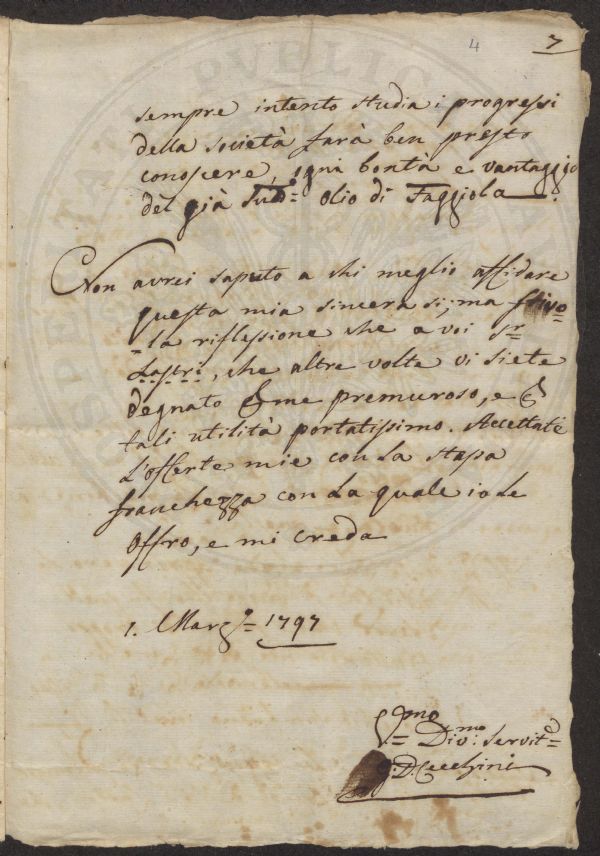 4 7
sempre intento studia i progressi
della società farà ben presto
conoscere, ogni bontà e vantaggio
del già Sud.º Olio di Faggiola.
Non avrei saputo a chi meglio affidare
questa mia sincera si, ma
la riflessione che a voi S.r
Lastri, che altre volte vi siete
degnato me premuroso, e
tali utilità portatissimo. Accettate
L'offerte mie con La stessa
franchezza con La quale io Le
Offro, e mi creda
1. Marzº 1797
Divo.mo Servit.e
G. D. Cecchini